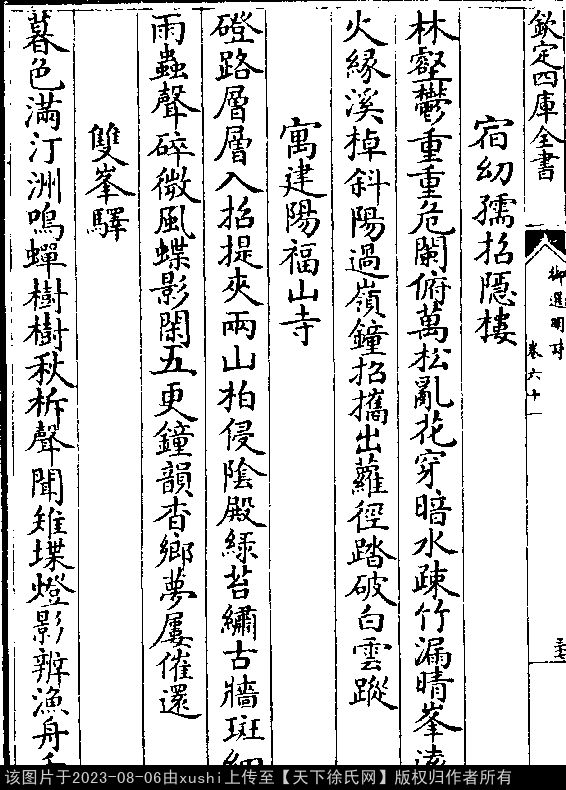 欽定四庫全書
御選明詩
卷六十一
宿幼孺招隱樓
林壑鬱重重危闌俯萬松亂花穿暗水疎竹漏晴峯遠
火緣溪棹斜陽過嶺鐘招攜出蘿徑踏破白雲蹤
寓建陽福山寺
磴路層層入招提夾兩山柏侵陰殿綠苔繡古牆斑細
雨蟲聲碎微風蝶影閑五更鐘韻杳鄉夢屢催還
雙峯驛
暮色滿汀洲鳴蟬樹樹秋柝聲聞雉堞燈影辨漁舟
该图片于2023-08-06由xushi上传至【天下徐氏网】版权归作者所有